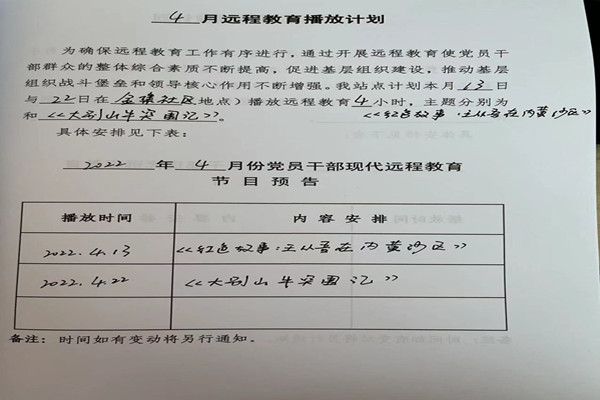 4 月远程教育播放计划
为确保远程教育工作有序进行，通过开展远程教育使党员干
部群众的整体综合素质不断提高，促进基层组织建设，推动基层
组织战斗堡垒和领导核心作用不断增强。我站点计划本月 13 日
与 22 日在 社区 地点）播放远程教育 4 小时，主题分别为
《红色故事：王从吾在内黄沙区》
和《大别山牛突围记》。
具体安排见下表：
2022 年 4 月份党员干部现代远程教育
节 目 预 告
播放时间 内 容 安 排
2022.4.13 《红色故事：王从吾在内黄沙区》
2022.4.22 《大别山牛突围记》
备注：时间如有变动将另行通知。